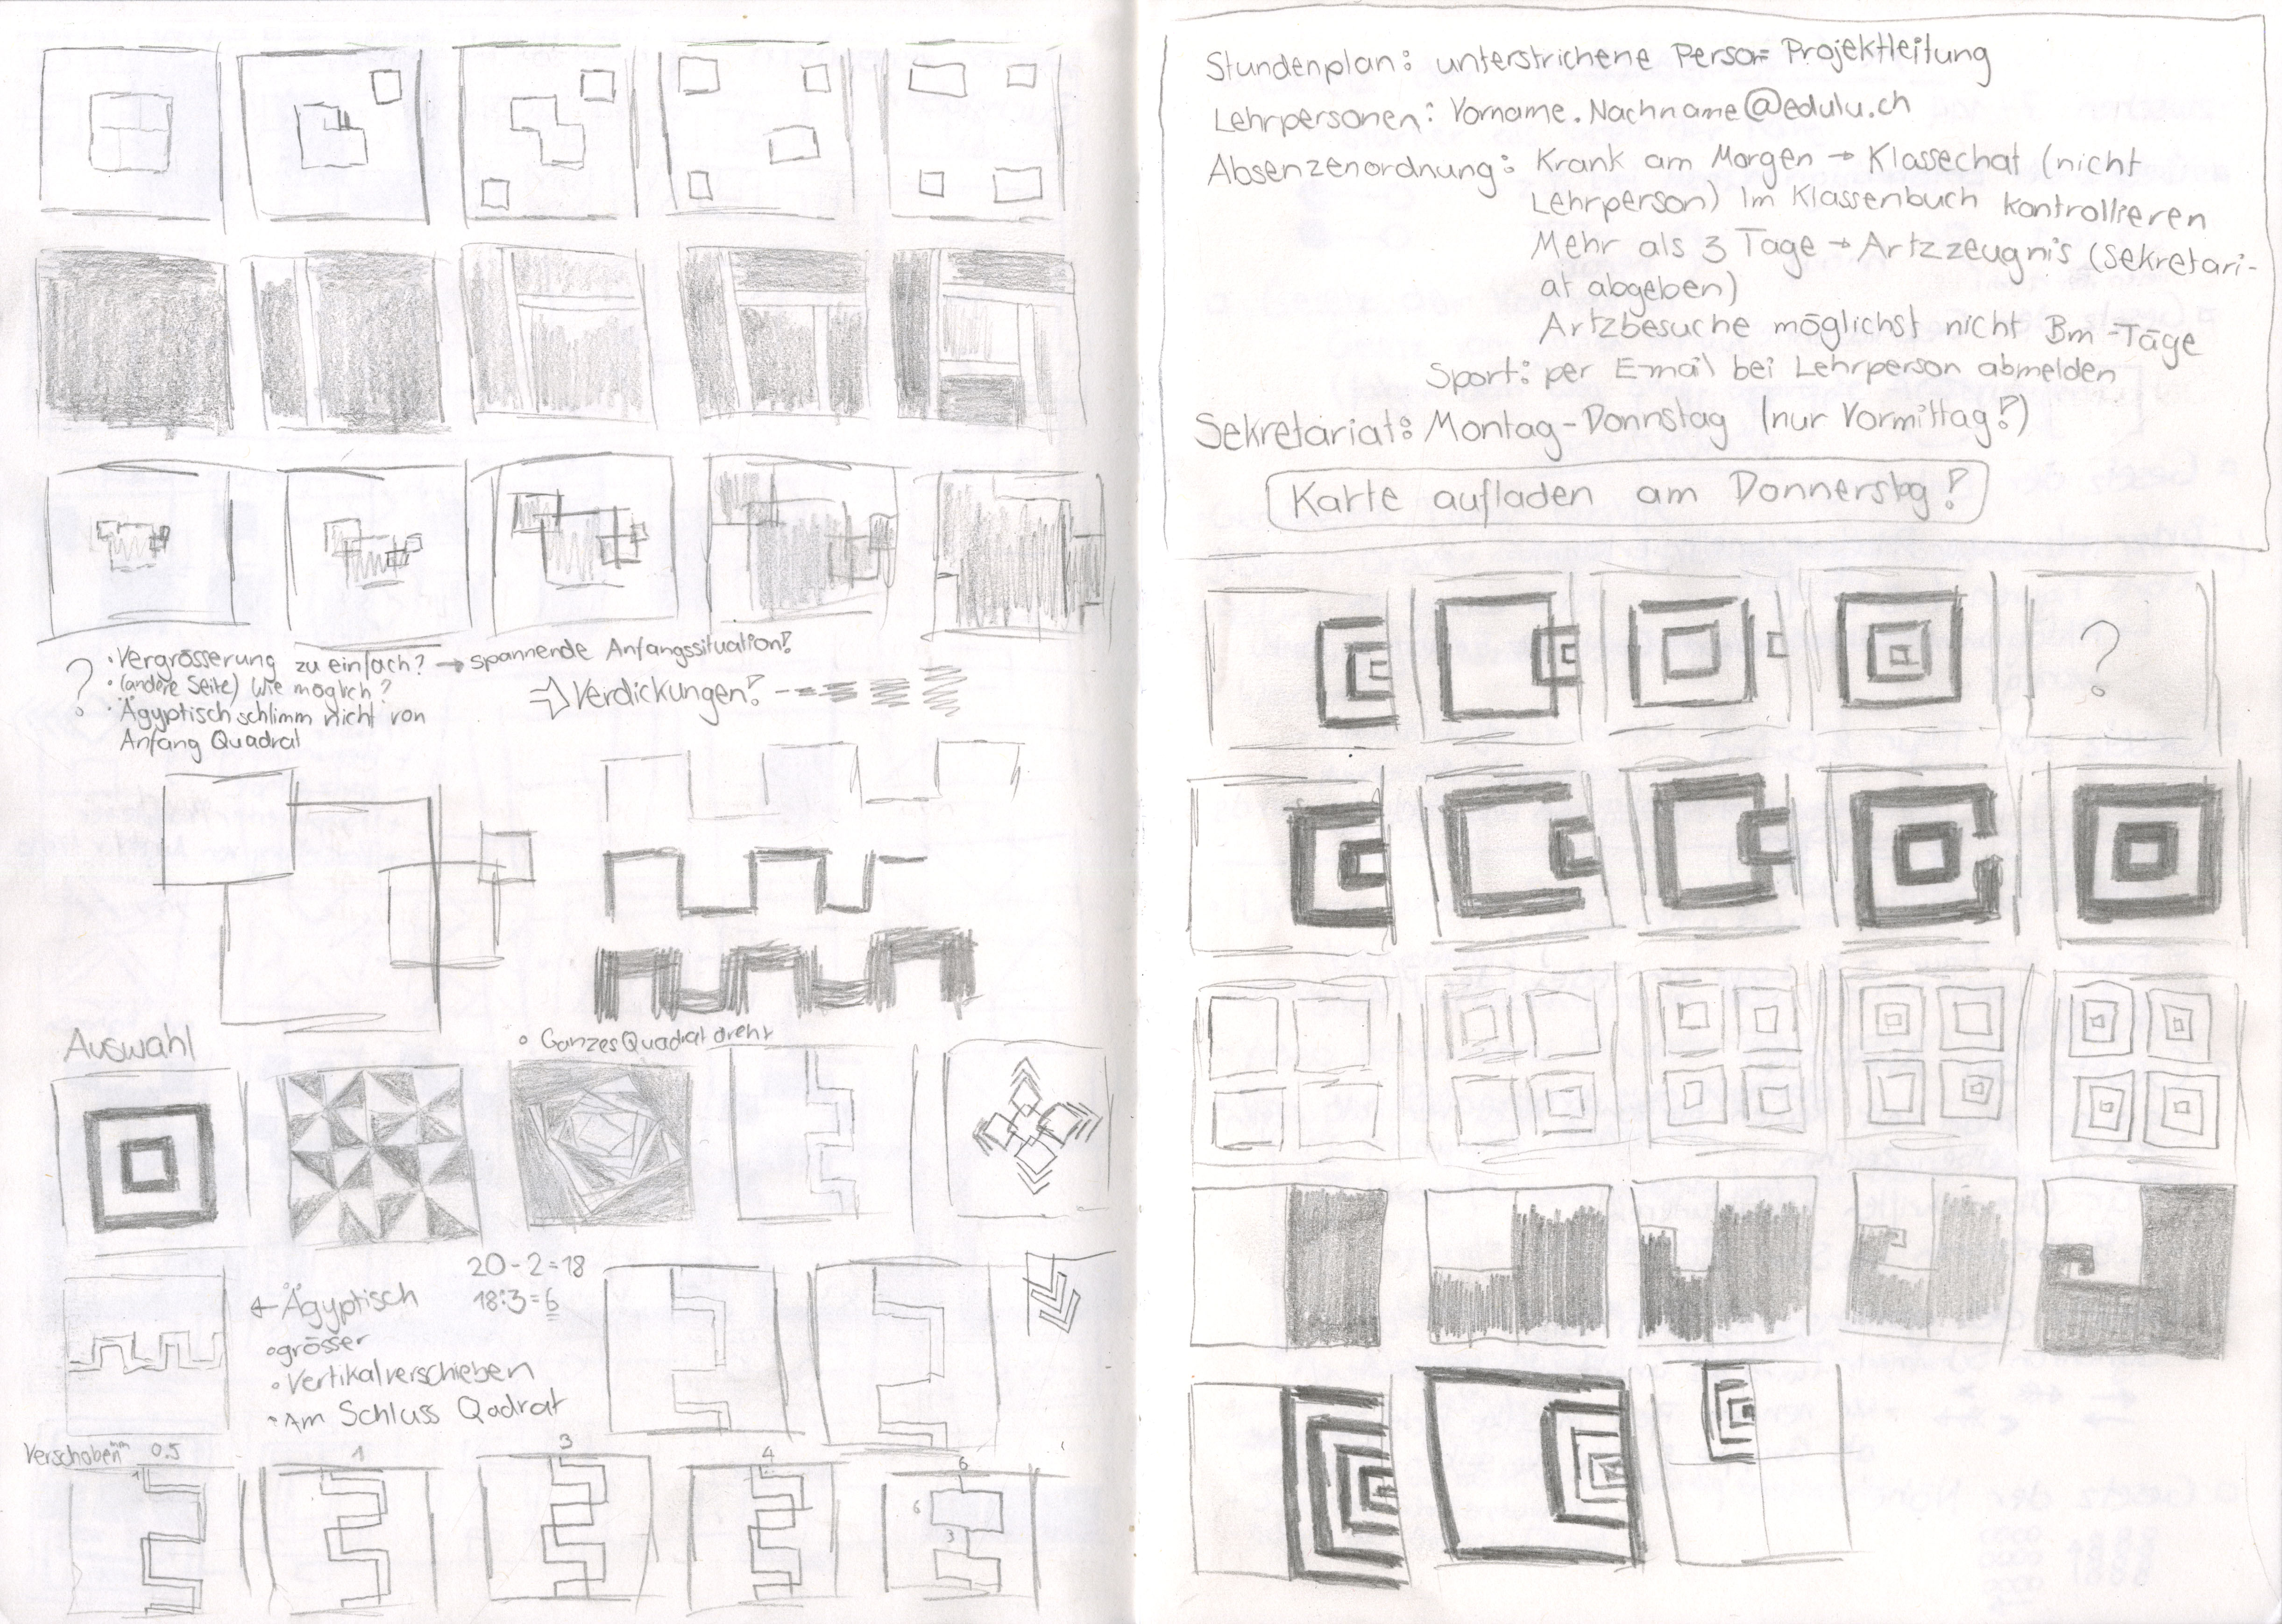 ? · Vergrösserung zu einfach? → spannende Anfangssituation!
· (andere Seite) Wie möglich?
· Ägyptisch schlimm nicht von
Anfang Quadrat
⇒ Verdickungen!
Auswahl
• Ganzes Quadrat dreht
← Ägyptisch
• grösser
• Vertikal verschieben
• Am Schluss Qadrat
20 - 2 = 18
18:3 = 6
Verschoben mm 0.5
1
1
3
4
6
6
3
Stundenplan: unterstrichene Person = Projektleitung
Lehrpersonen: Vorname.Nachname@edulu.ch
Absenzenordnung: Krank am Morgen → Klassechat (nicht
Lehrperson) Im Klassenbuch kontrollieren
Mehr als 3 Tage → Artzzeugnis (Sekretari-
at abgeben)
Artzbesuche möglichst nicht Bm-Täge
Sport: per E-mail bei Lehrperson abmelden
Sekretariat: Montag-Donnstag (nur Vormittag!)
Karte aufladen am Donnerstag!
?